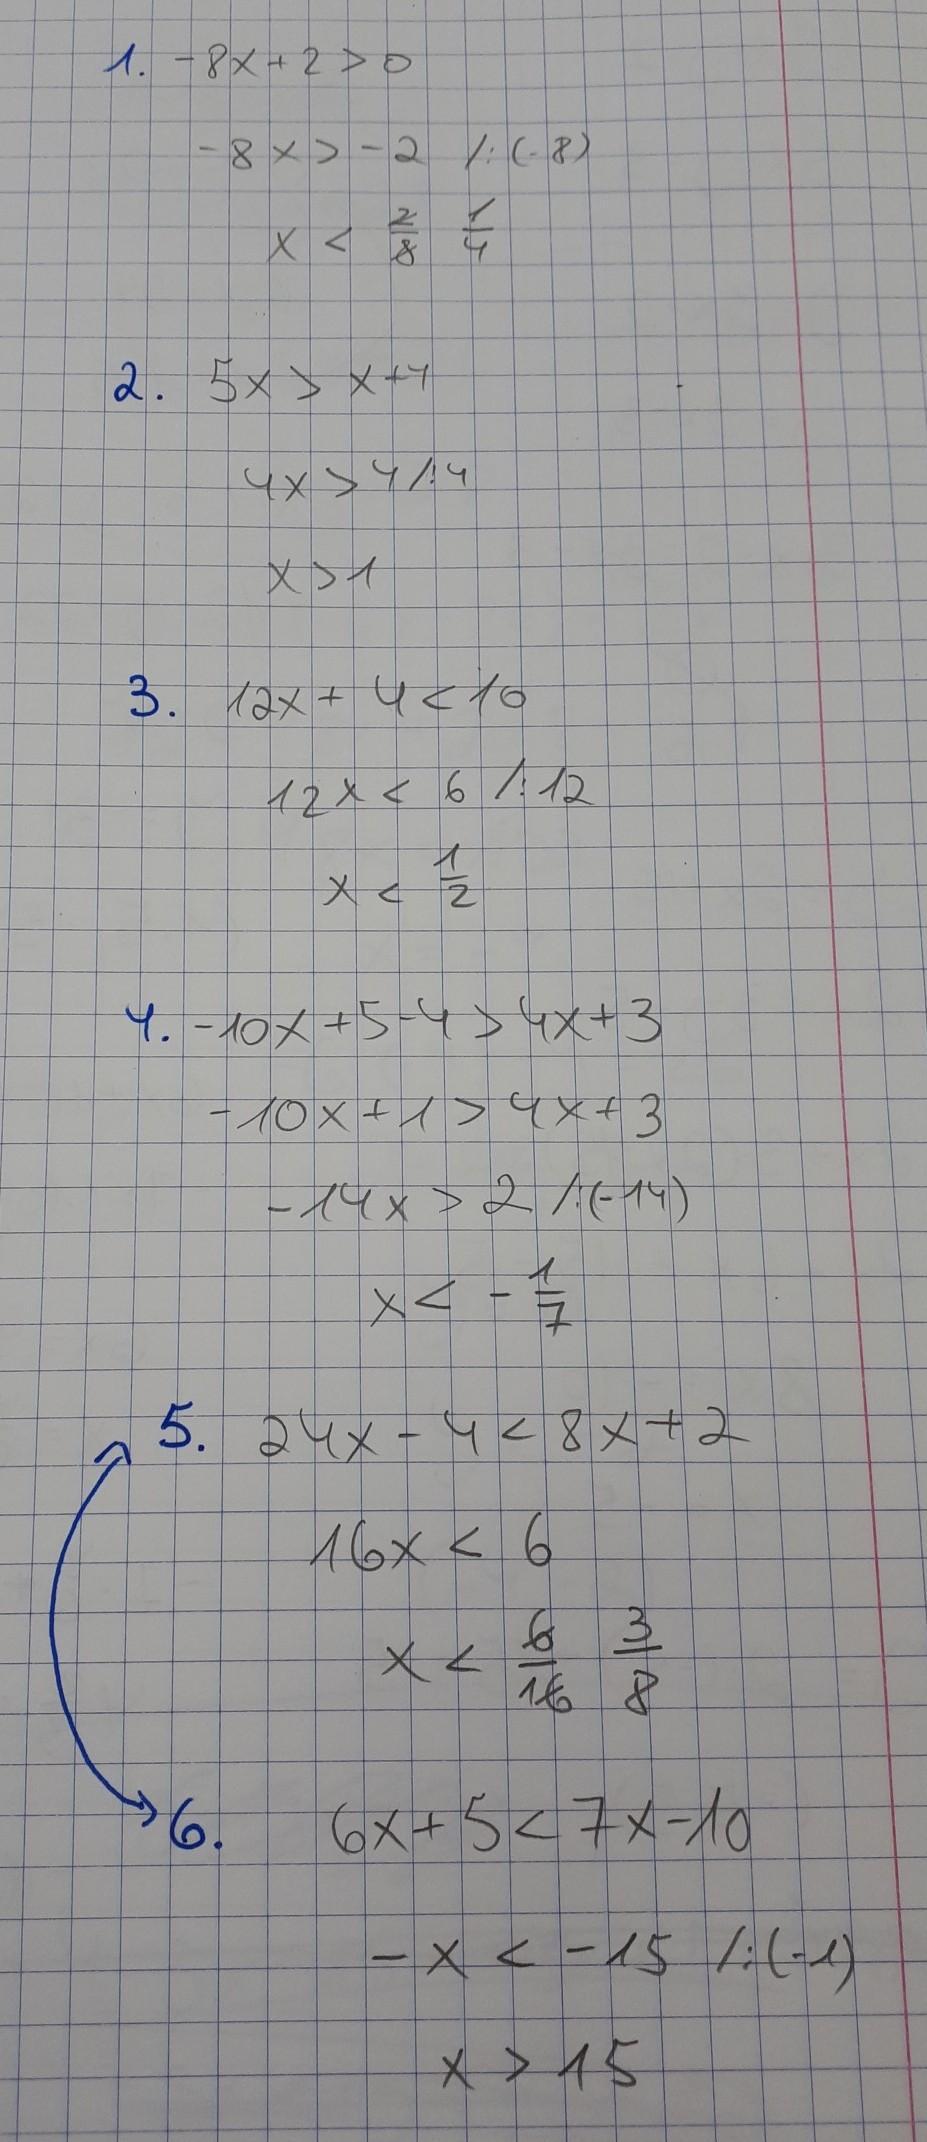 1. -8x+2>0
-8x>-2 /:(-8)
x < 2/8 1/4
2. 5x > x+4
4x>4/:4
x>1
3. 12x+4<10
12x< 6 /:12
x < 1/2
4. -10x+5-4>4x+3
-10x+1>4x+3
-14x>2 /:(-14)
x< -1/7
5. 24x-4<8x+2
16x< 6
x < 6/16 3/8
6. 6x+5<7x-10
-x < -15 /:(-1)
x > 15